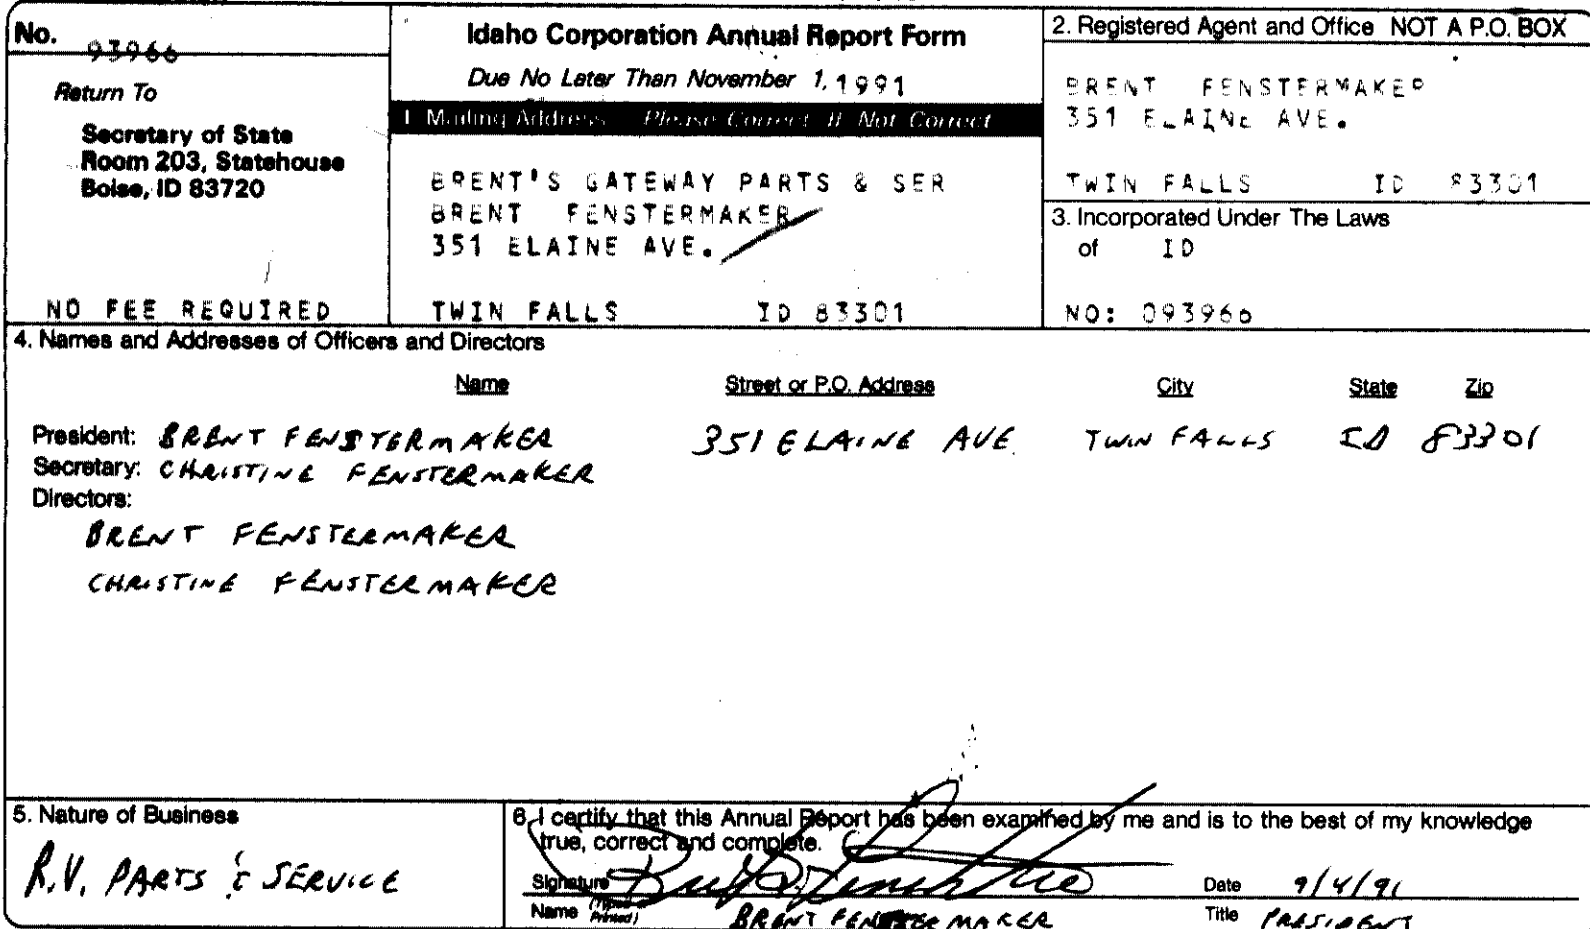 No. 93966
Return To
Secretary of State
Room 203, Statehouse
Boise, ID 83720
NO FEE REQUIRED
Idaho Corporation Annual Report Form
Due No Later Than November 1, 1991
1 Mailing Address Please Correct If Not Correct
BRENT'S GATEWAY PARTS & SER
BRENT FENSTERMAKER
351 ELAINE AVE.
TWIN FALLS ID 83301
2. Registered Agent and Office NOT A P.O. BOX
BRENT FENSTERMAKER
351 ELAINE AVE.
TWIN FALLS ID 83301
3. Incorporated Under The Laws
of ID
NO: 093966
4. Names and Addresses of Officers and Directors
Name Street or P.O. Address City State Zip
President: BRENT FENSTERMAKER 351 ELAINE AVE. TWIN FALLS ID 83301
Secretary: CHRISTINE FENSTERMAKER
Directors:
BRENT FENSTERMAKER
CHRISTINE FENSTERMAKER
5. Nature of Business
R.V. PARTS & SERVICE
6. I certify that this Annual Report has been examined by me and is to the best of my knowledge
true, correct and complete.
Signature Date 9/4/91
Name (Typed or Printed) BRENT FENSTERMAKER Title PRESIDENT